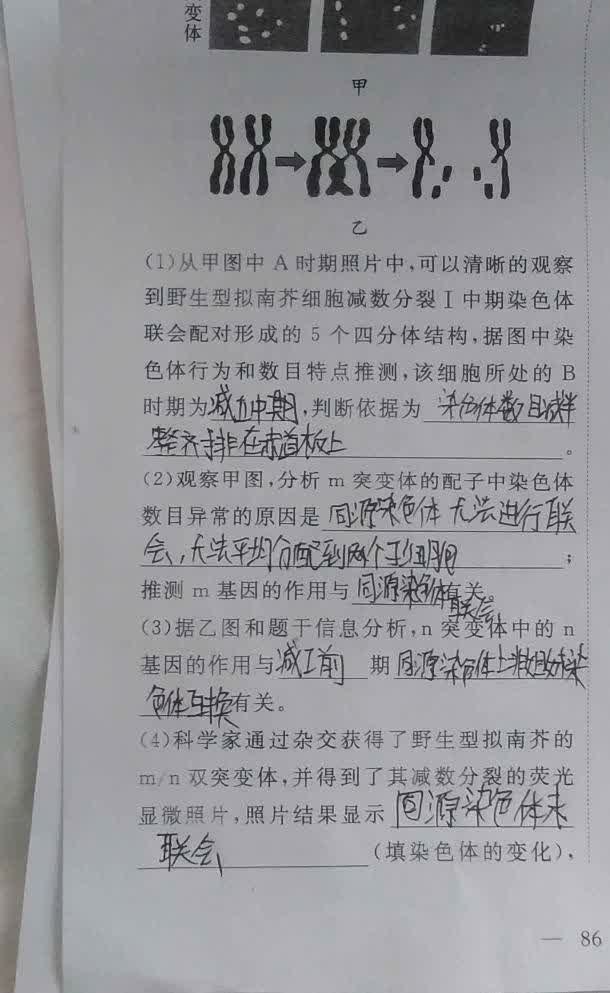 变
体
甲
乙
(1)从甲图中 A 时期照片中,可以清晰的观察
到野生型拟南芥细胞减数分裂 I 中期染色体
联会配对形成的 5 个四分体结构,据图中染
色体行为和数目特点推测,该细胞所处的 B
时期为减Ⅱ中期,判断依据为 染色体数目减半
整齐排在赤道板上。
(2)观察甲图,分析 m 突变体的配子中染色体
数目异常的原因是 同源染色体无法进行联
会,无法平均分配到两个子细胞;
推测 m 基因的作用与 同源染色体有关。
联会
(3)据乙图和题干信息分析,n 突变体中的 n
基因的作用与减I前 期 同源染色体上非姐妹染
色体互换有关。
(4)科学家通过杂交获得了野生型拟南芥的
m/n 双突变体,并得到了其减数分裂的荧光
显微照片,照片结果显示 同源染色体未
联会 (填染色体的变化),
— 86